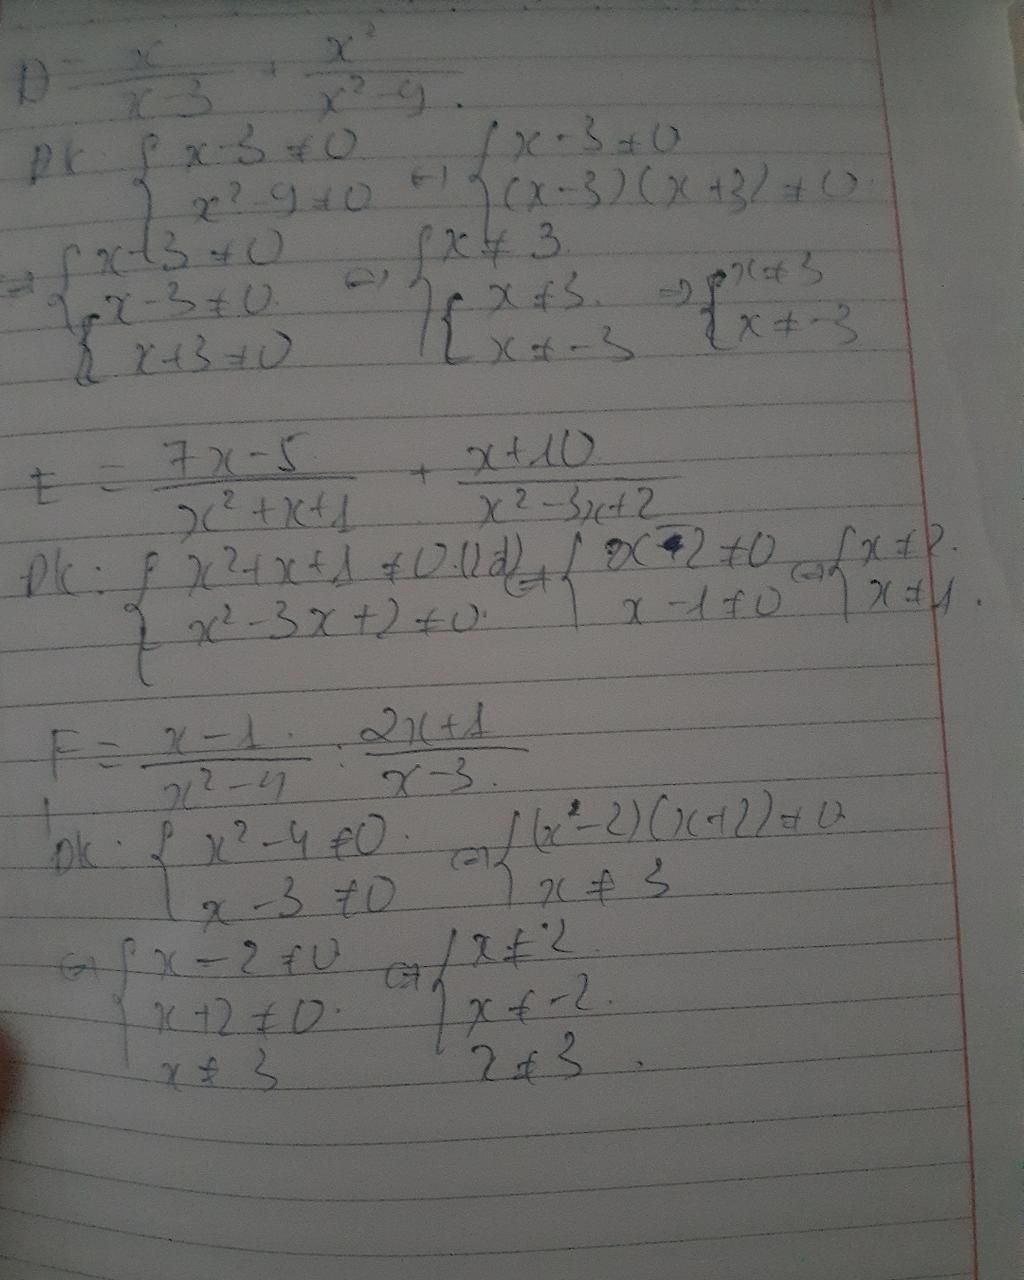 D = x/(x-3) + x²/(x²-9).
ĐK: { x-3 ≠ 0 ; x²-9 ≠ 0 ⇔ { x-3 ≠ 0 ; (x-3)(x+3) ≠ 0
⇔ { x-3 ≠ 0 ; { x-3 ≠ 0 ; x+3 ≠ 0 ⇔ { x ≠ 3 ; { x ≠ 3 ; x ≠ -3 ⇒ { x ≠ 3 ; x ≠ -3
E = (7x-5)/(x²+x+1) + (x+10)/(x²-3x+2)
ĐK: { x²+x+1 ≠ 0 (lđ) ; x²-3x+2 ≠ 0 ⇔ { x-2 ≠ 0 ; x-1 ≠ 0 ⇔ { x ≠ 2 ; x ≠ 1.
F = (x-1)/(x²-4) : (2x+1)/(x-3)
ĐK: { x²-4 ≠ 0 ; x-3 ≠ 0 ⇔ { (x-2)(x+2) ≠ 0 ; x ≠ 3
⇔ { x-2 ≠ 0 ; x+2 ≠ 0 ; x ≠ 3 ⇔ { x ≠ 2 ; x ≠ -2 ; x ≠ 3.